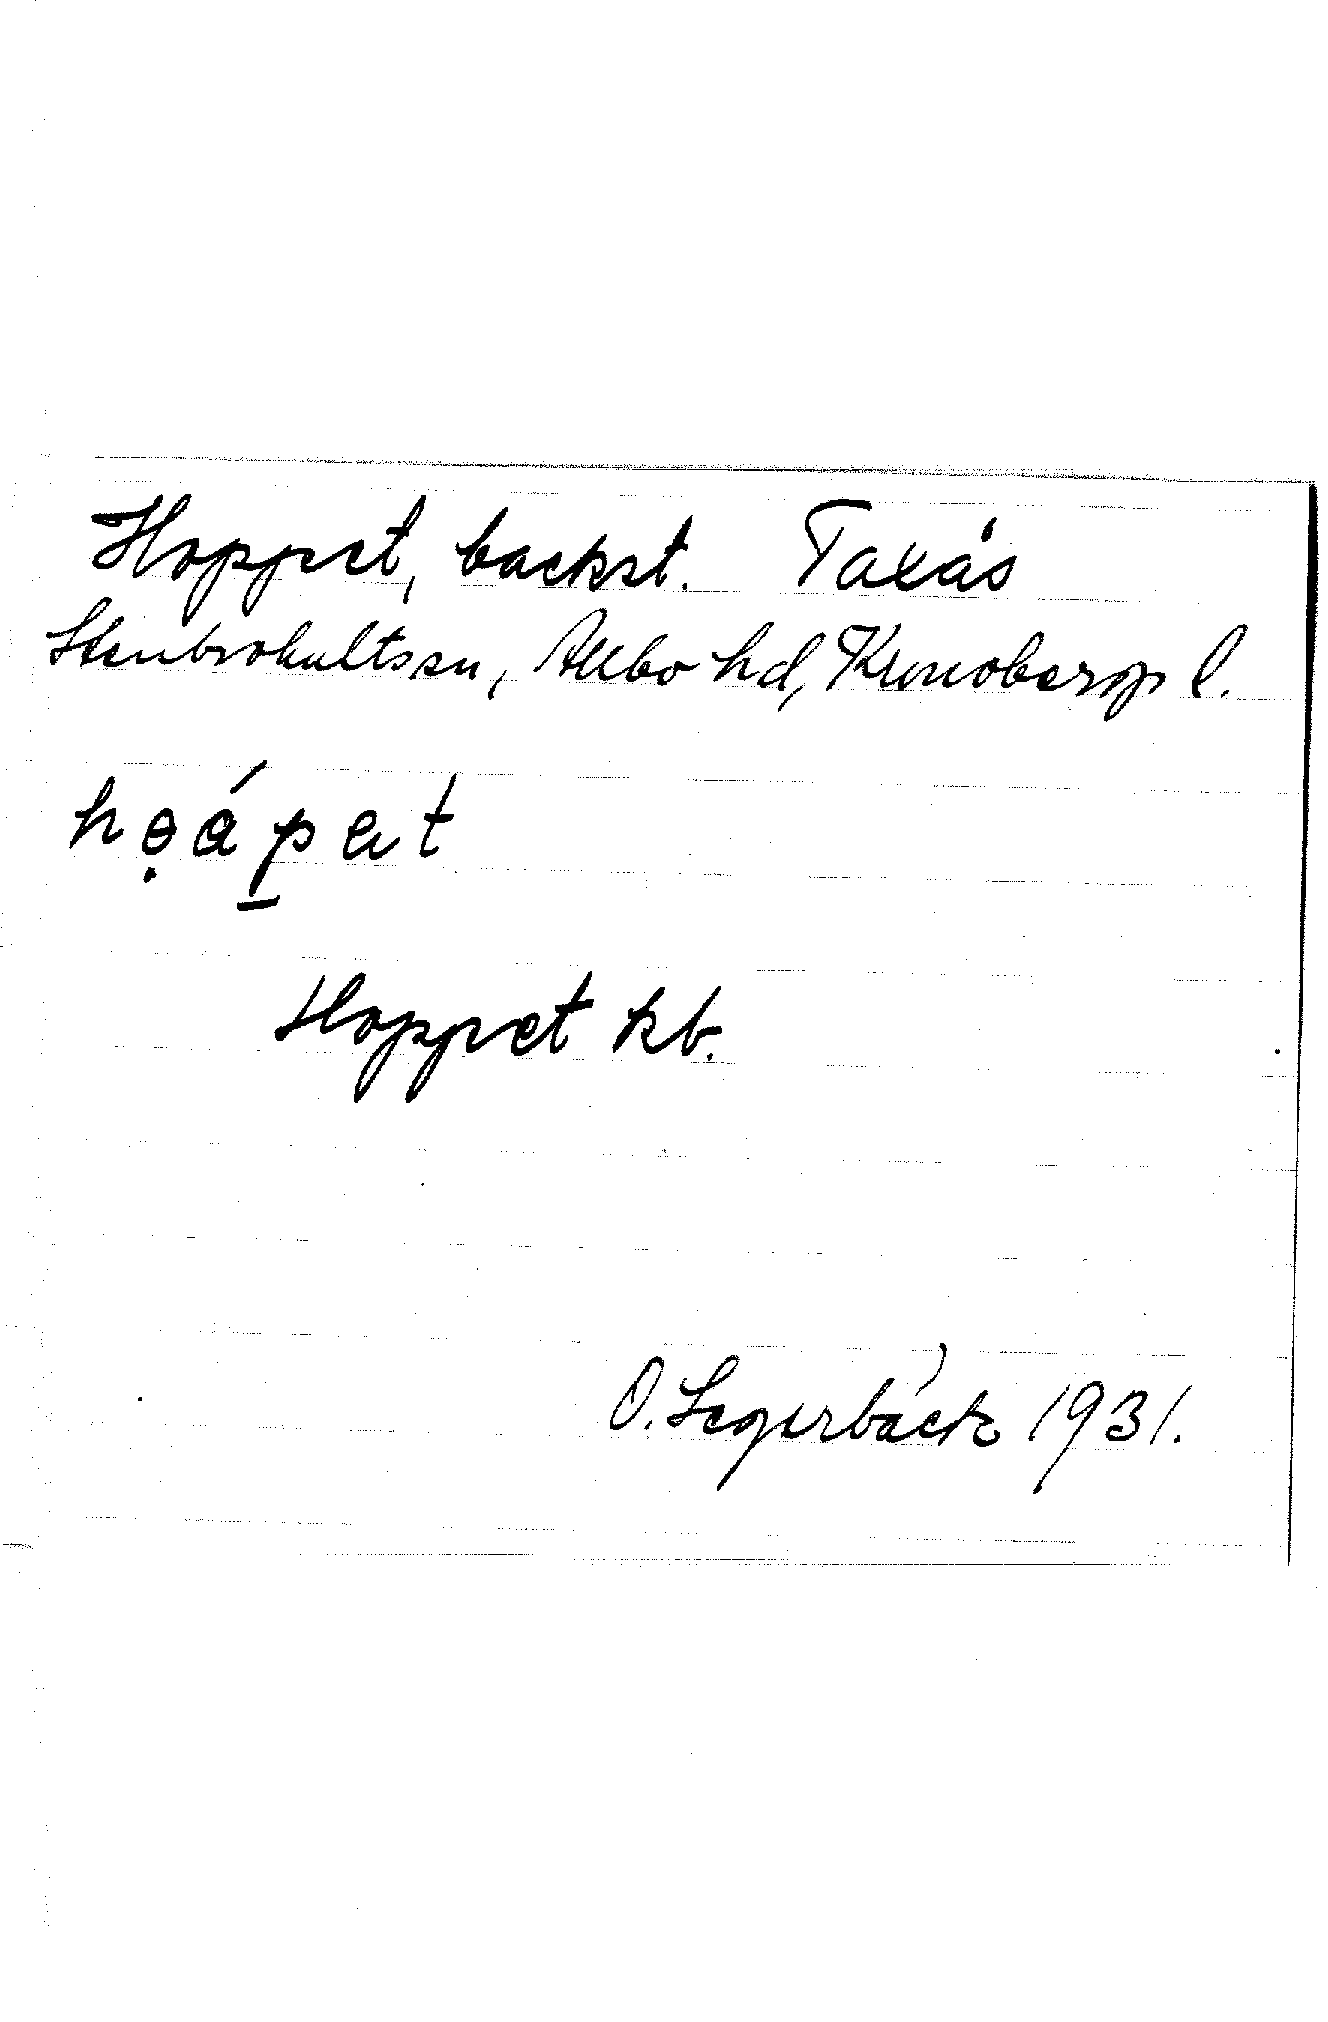 Hoppet, backst. Taxås
Stenbrohultssn, Allbo hd, Kronobergs l.
hǫápat
Hoppet kb.
O. Segerbäck 1931.